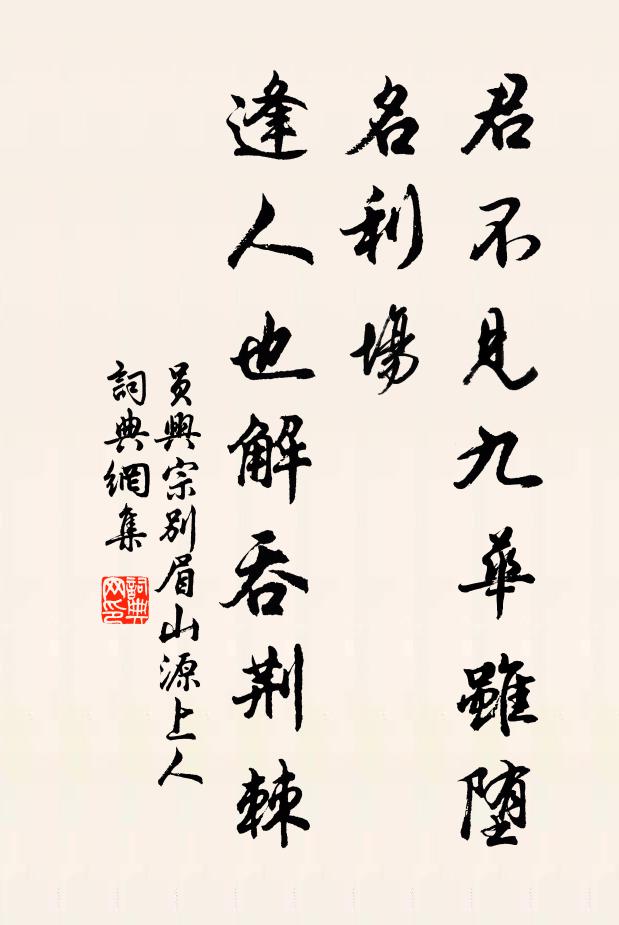 君不見九華雖墮
名利場
逢人也解吞荆棘
員興宗别眉山源上人
詞典網集
詞典網印